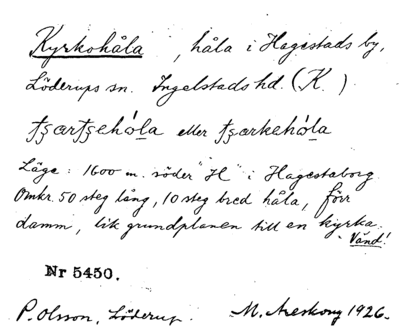 Kyrkohåla, håla i Hagestads by,
Löderups sn. Ingelstads hd. (K.)
ʈʂærʈʂehóla eller ʈʂærkehóla
Läge: 1600 m. söder "H" i Hagestaborg
Omkr. 50 steg lång, 10 steg bred håla, förr
damm, lik grundplanen till en kyrka.
- Vänd!
Nr 5450.
P. Olsson, Löderup. M. Areskoug 1926.